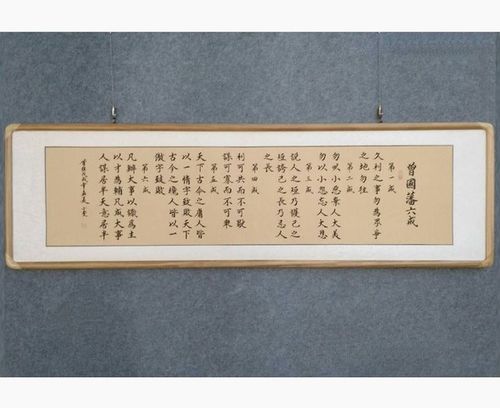 曾國藩六戒
第一戒
久利之事勿為眾爭
之地勿往
第二戒
勿以小惡棄人大美
勿以小怨忘人大恩
第三戒
說人之短乃護己之
短誇己之長乃忌人
之長
第四戒
利可共而不可獨
謀可寡而不可眾
第五戒
天下古今之庸人皆
以一惰字致敗天下
古今之人皆以一
傲字致敗
第六戒
凡辦大事以識為主
以才為輔凡成大事
人謀居半天意居半